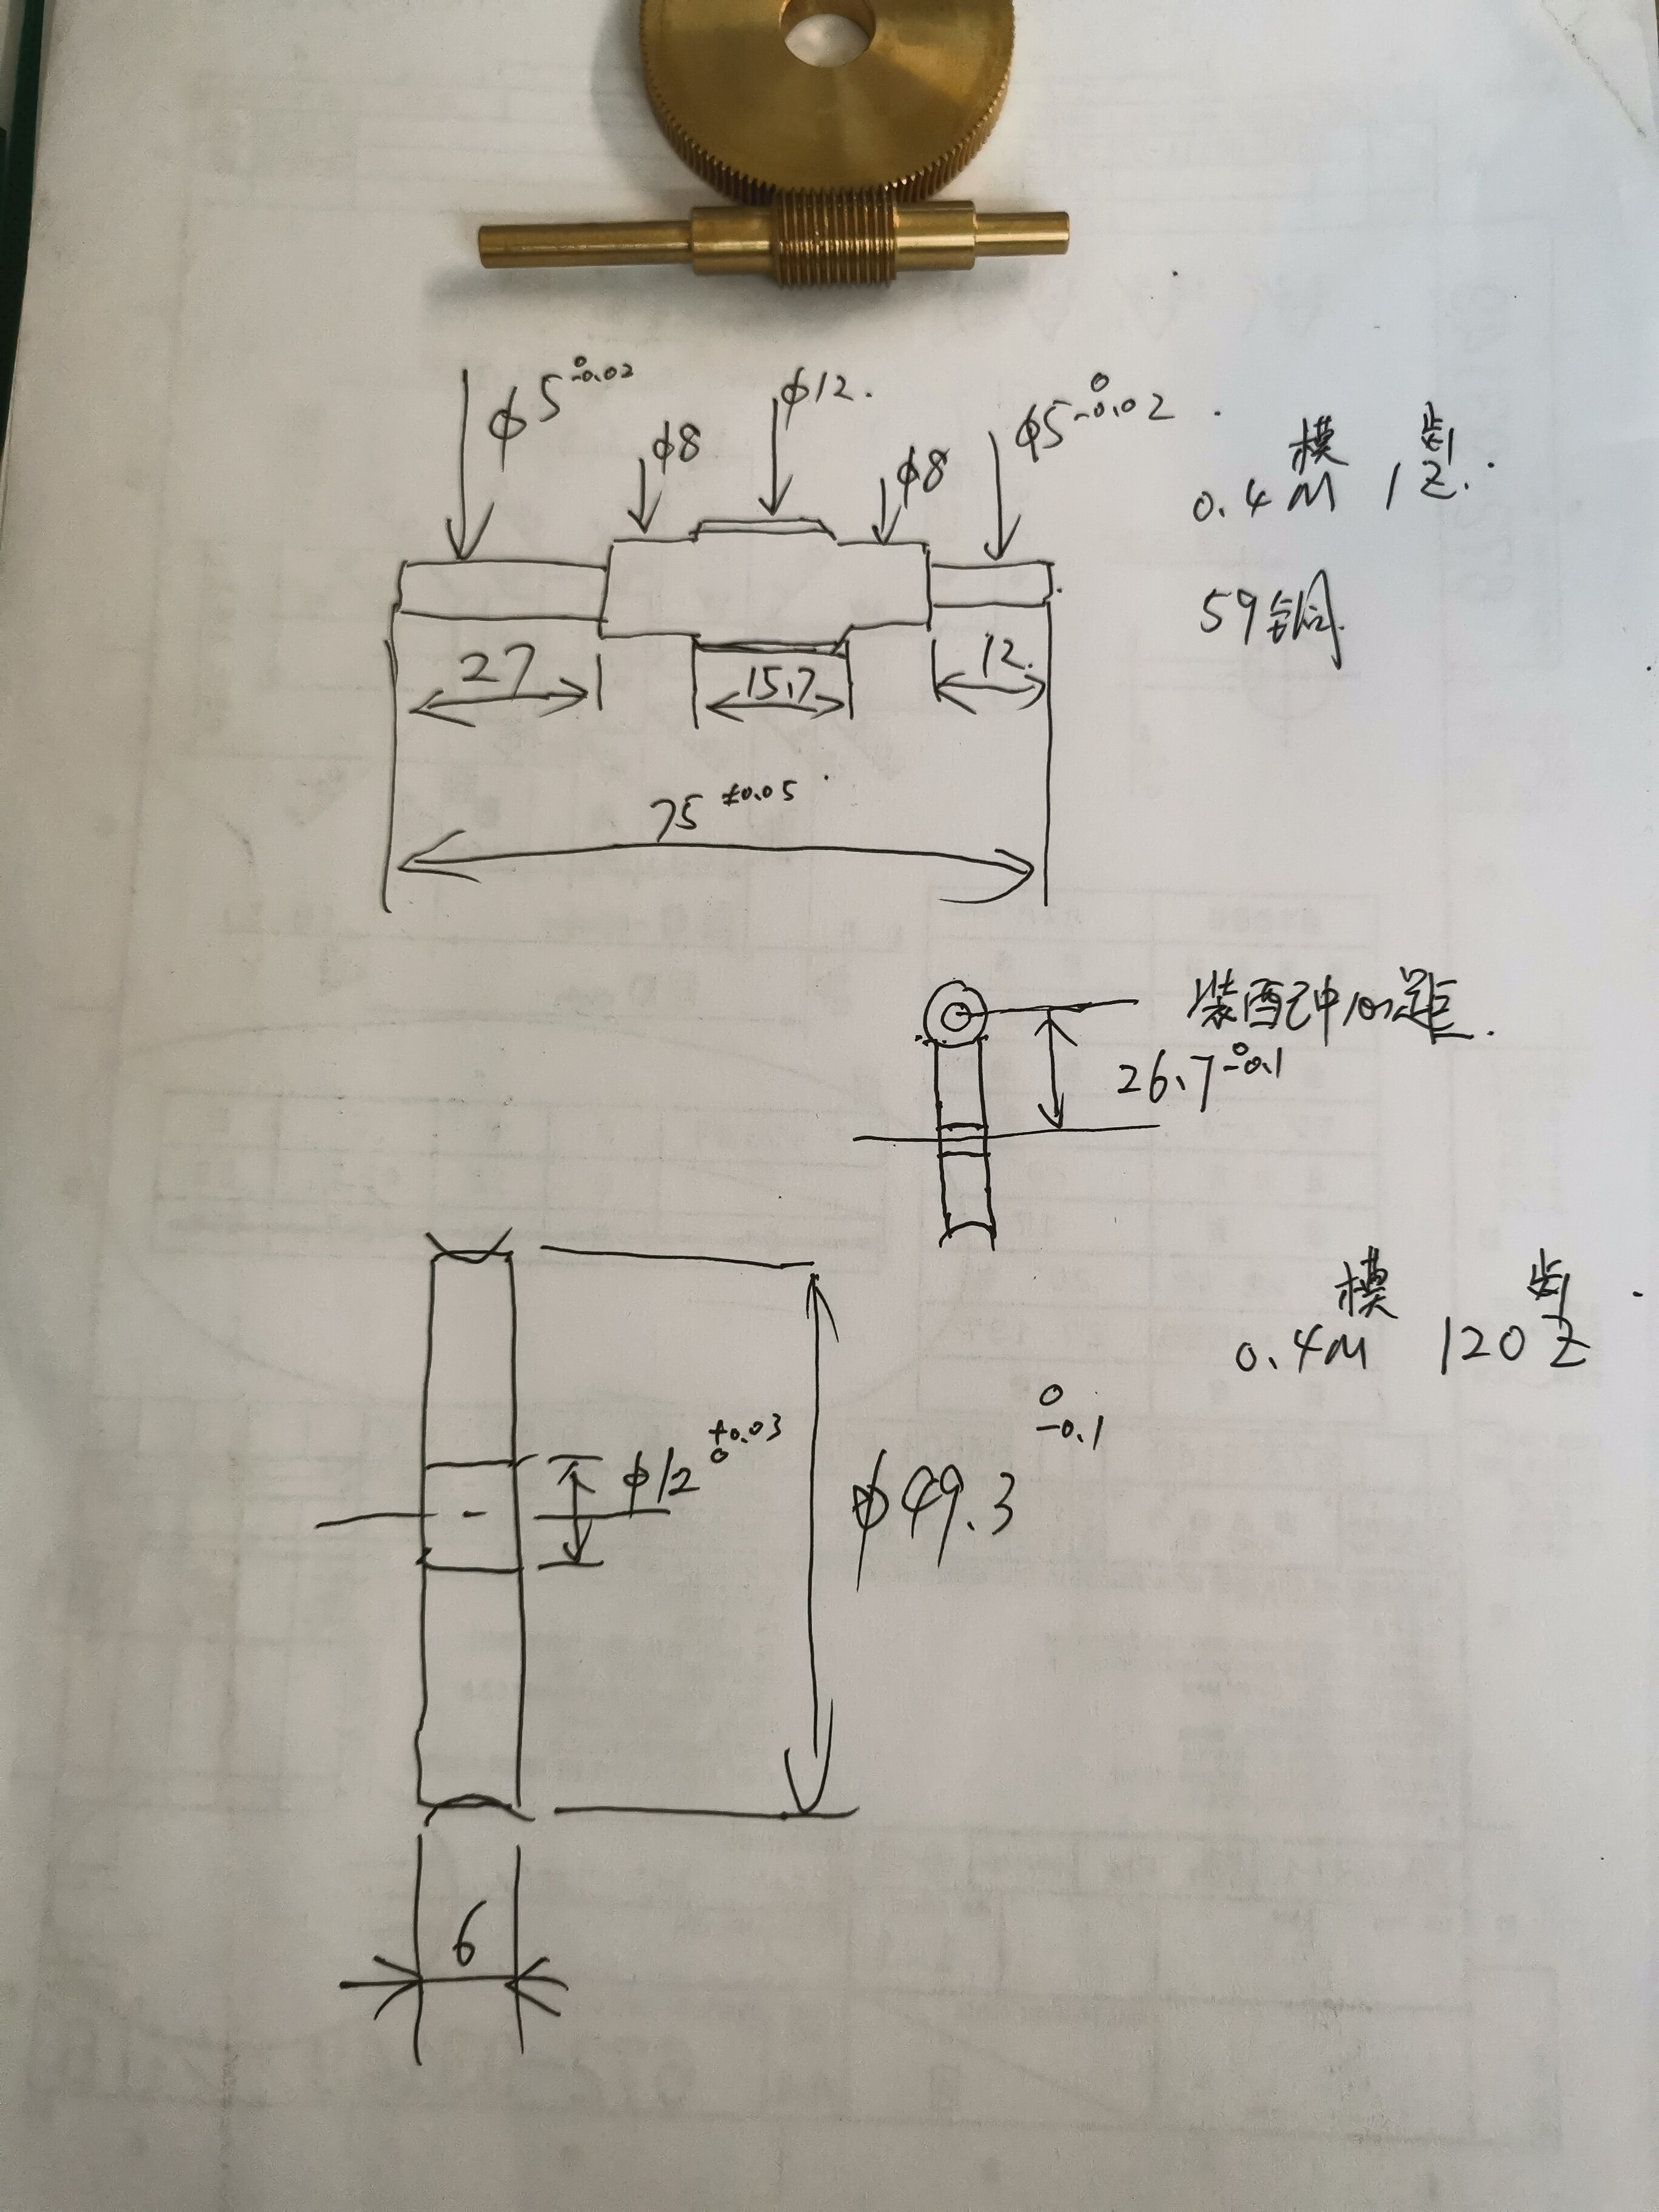 φ5 0 -0.02
φ8
φ12.
φ8
φ5 0 -0.02
模 齿
0.4M 1Z.
59铜
27
15.7
12.
75 ±0.05
装配中心距.
26.7 0 -0.1
模 齿
0.4M 120Z
φ12 +0.03 0
φ49.3 0 -0.1
6